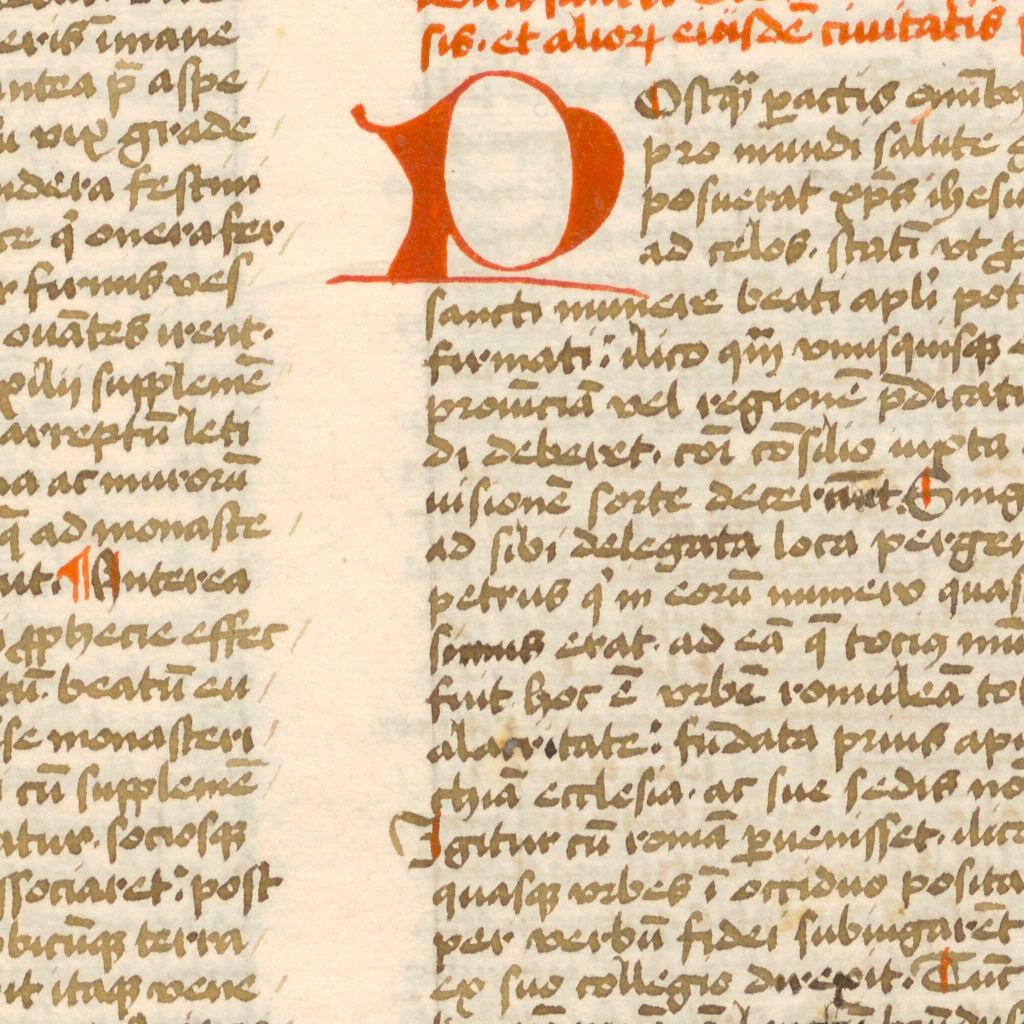 eris īmane
antea p̄ aspe
vix grade
ndera festini
te q̇ onera fer
r firmis ves
ouātes irent.
xilij supplemē
arreptū leti
na ac murorū
q̄ ad monaste
¶ Interea
ꝓphecie effec
tū. beatū eu
sse monasteri
cū supplemē
atur. sociosqꝫ
ssociaret : post
bicūqꝫ terra
it itaqꝫ vene
sis. et alioꝝ eiusdē ciuitatis
POstqȝ̄ ꝑactis omībꝫ
pro mundi salute
posuerat xp̄s ihesu
ad celos. statī vt
sancti munere beati apl̓i pot
firmati : ilico qm̄ vnusquisqꝫ
prouīciā vel regionē p̄dicati
di deberet. cōi cōsilio iuxta
uisionē sorte decernūt. Sing
ad sibi delegata loca perger
petrus q̇ in eorū numero quas
simus erat. ad eā q̄ tociꝰ mū
fuit hoc ē vrbē romuleā to
alacritate : fūdata prius ap
thiā ecclesia. ac sue sedis no
Igitur cū romā ꝑuenisset. ilico
quasqꝫ vrbes ī occiduo posita
per verbū fidei subiugarēt
ex suo collegio direxit. Tūc